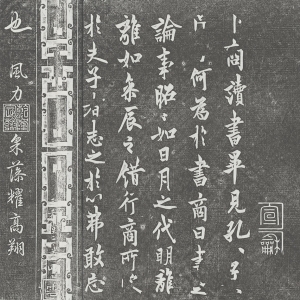 卜商讀書畢見孔〻子〻
何為於書商曰書之
論事昭〻如日月之代明離
離如参辰之錯行商所
於夫子〻者志之於心弗敢忘
也
風力
藻耀高翔